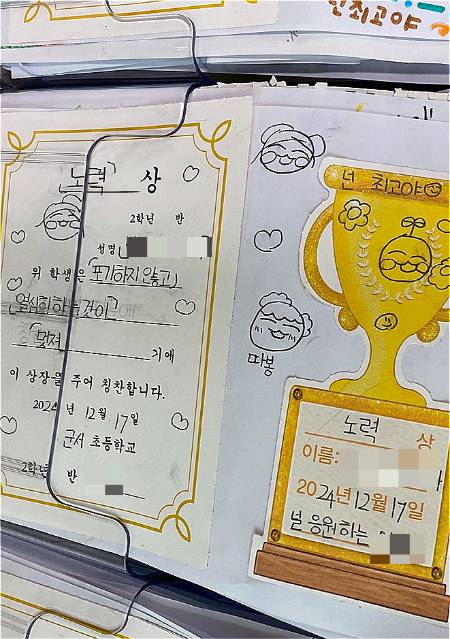 인최고야
노력 상
2학년 반
성명
위 학생은 포기하지 않고
열심히 하는 것이
멋져 기에
이 상장을 주어 칭찬합니다.
2024년 12월 17일
군서 초등학교
2학년 반
넌 최고야
따봉
노력 상
이름:
2024년 12월 17일
널 응원하는